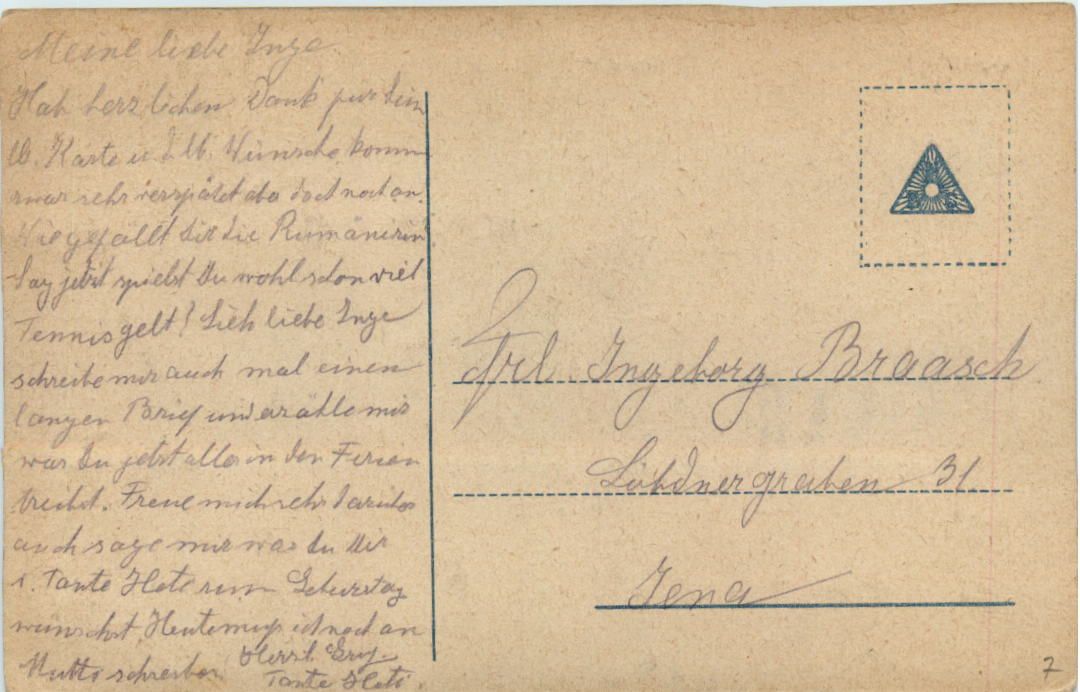 Meine liebe Inge
Hab herzlichen Dank für dein
lb. Karte u. d. lb. Wünsche komm
zwar sehr verspätet aber doch noch an.
Wie gefällt dir die Rumänerin?
Sag jetzt spielst Du wohl schon viel
Tennis gelt! Sieh liebe Inge
schreibe mir auch mal einen
langen Brief und erzähle mir
was Du jetzt alles in den Ferien
treibst. Freue mich sehr darüber
auch sage mir was Du Dir
v. Tante Hete zum Geburtstag
wünschst. Heute muss ich noch an
Mutti schreiben. Herzl.
Tante Hete.
Frl Ingeborg Braasch
Löbdnergraben 31.
Jena
7